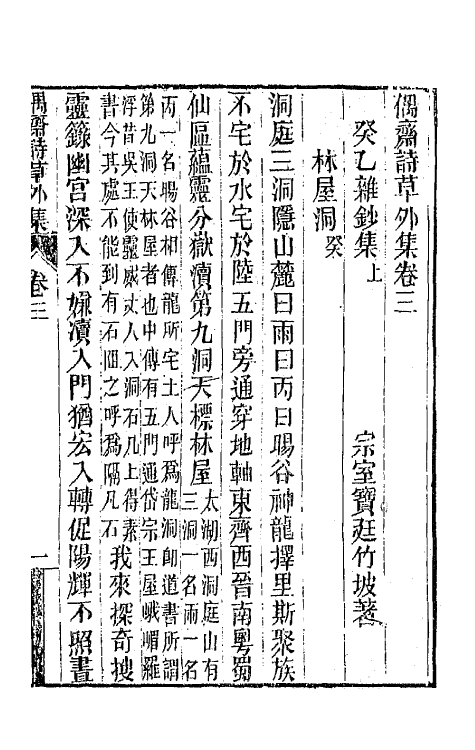 偶齋詩草外集卷三
癸乙雜鈔集上
宗室寶廷竹坡著
林屋洞癸
洞庭三洞隱山麓曰雨曰丙曰暘谷神龍擇里斯聚族
不宅於水宅於陸五門旁通穿地軸東齊西晉南粵蜀
仙區蘊靈分嶽瀆第九洞天標林屋太湖西洞庭山有
三洞一名雨一名
丙一名暘谷相傳龍所宅土人呼爲龍洞卽道書所謂
第九洞天林屋者也中傳有五門通岱宗王屋峨嵋羅
浮昔吳王使靈威丈人入洞石几上得素
書今其處不能到有石㘭之呼爲隔凡石我來探奇搜
靈籙幽宫深入不嫌瀆入門猶宏入轉促陽輝不照晝
偶齋詩草外集
卷三
一